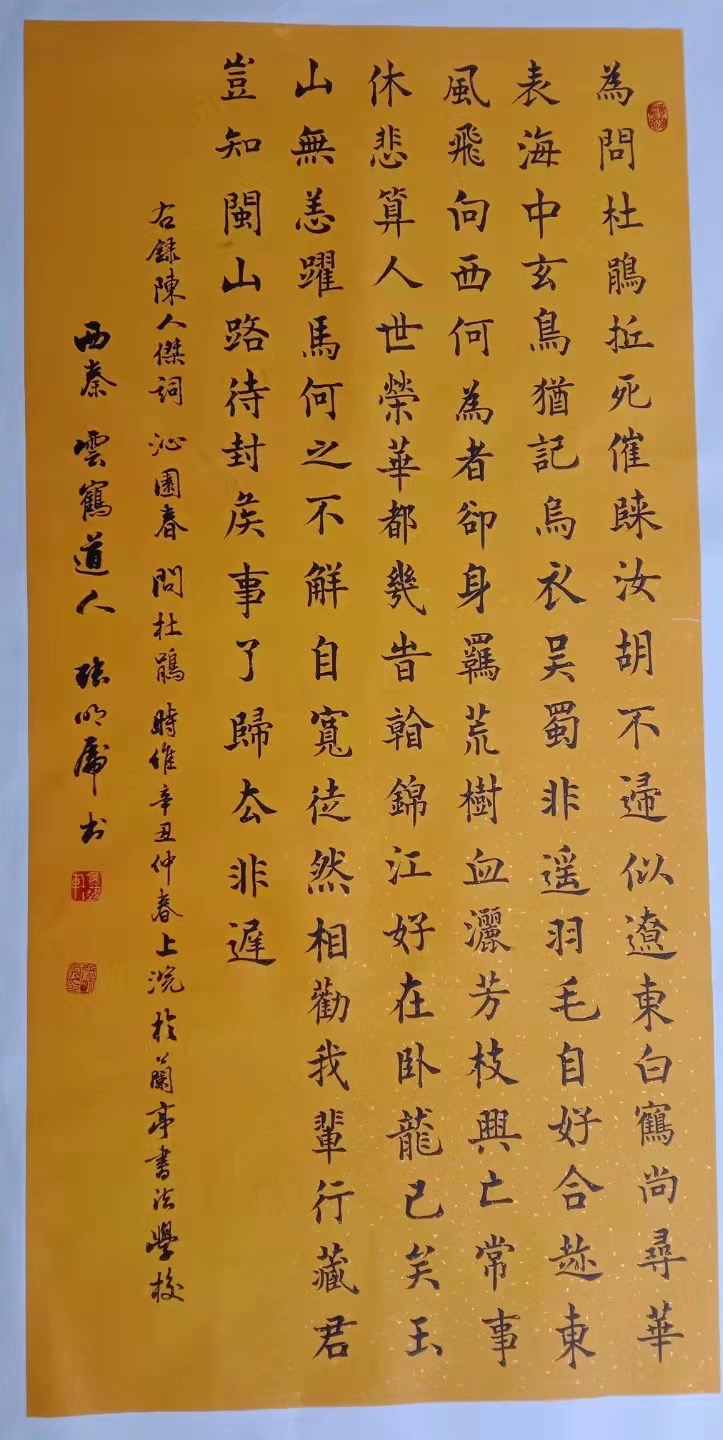 為問杜鵑抵死催歸汝胡不歸似遼東白鶴尚尋華
表海中玄鳥猶記烏衣吴蜀非遥羽毛自好合趂東
風飛向西何為者卻身羈荒樹血灑芳枝興亡常事
休悲算人世榮華都幾旹翰錦江好在卧龍已矣玉
山無恙躍馬何之不解自寬徒然相勸我輩行藏君
豈知閩山路待封侯事了歸去非遲
右録陳人傑詞 沁園春 問杜鵑 時維辛丑仲春上浣於蘭亭書法學校
西秦 雲鶴道人 張明虎书